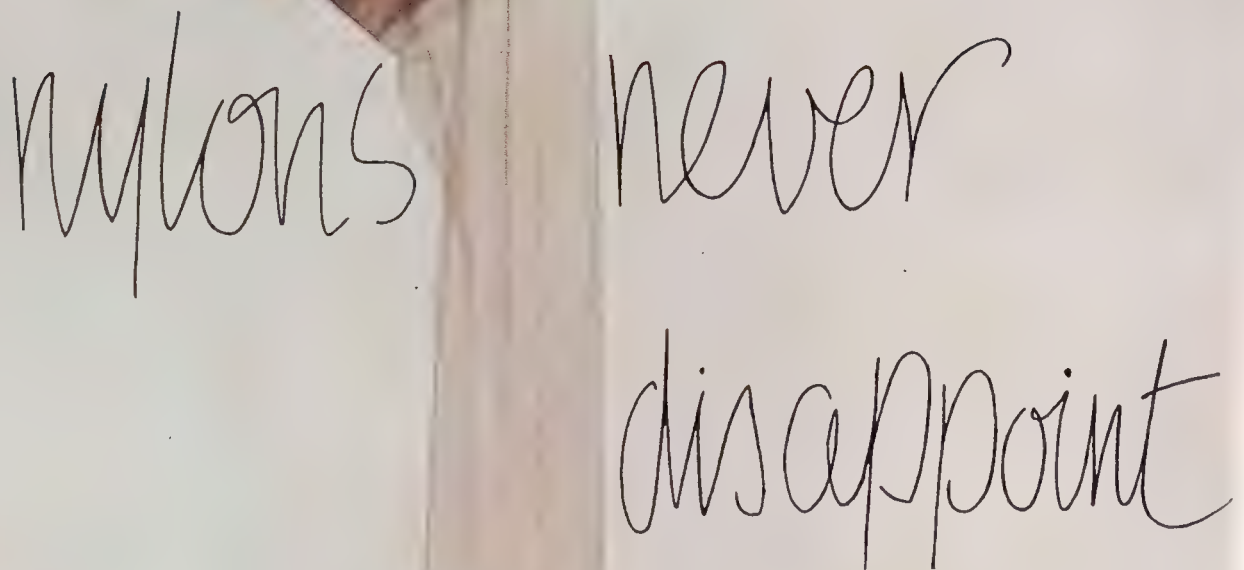 nylons never
disappoint